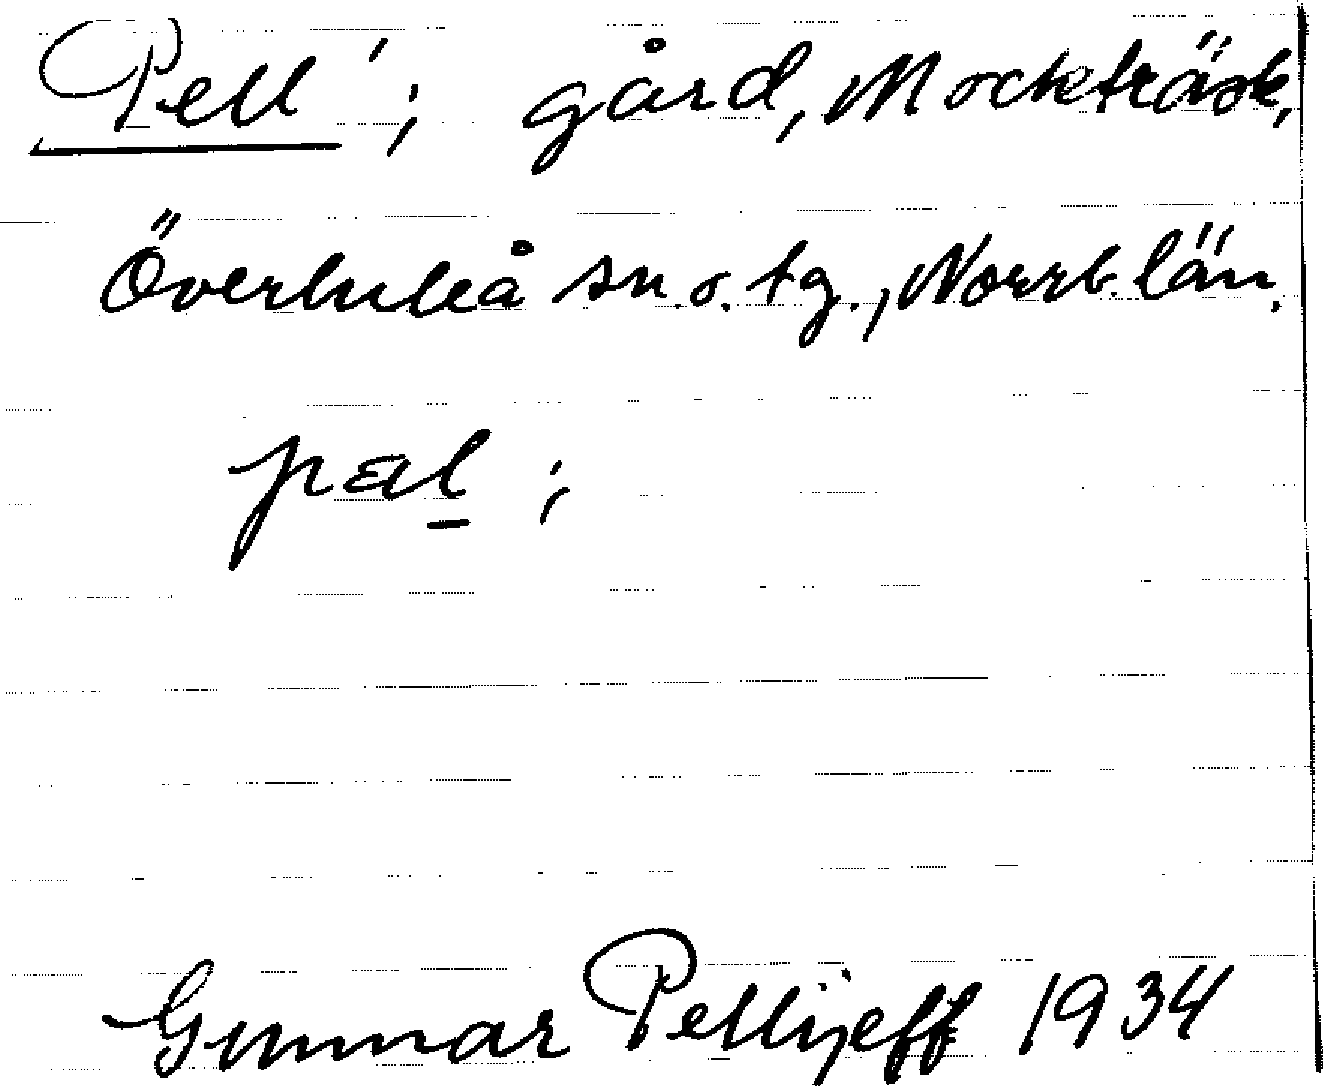 Pell'; gård, Mockträsk,
Överluleå sn. o. tg., Norrb. län.
pæl;
Gunnar Pellijeff 1934